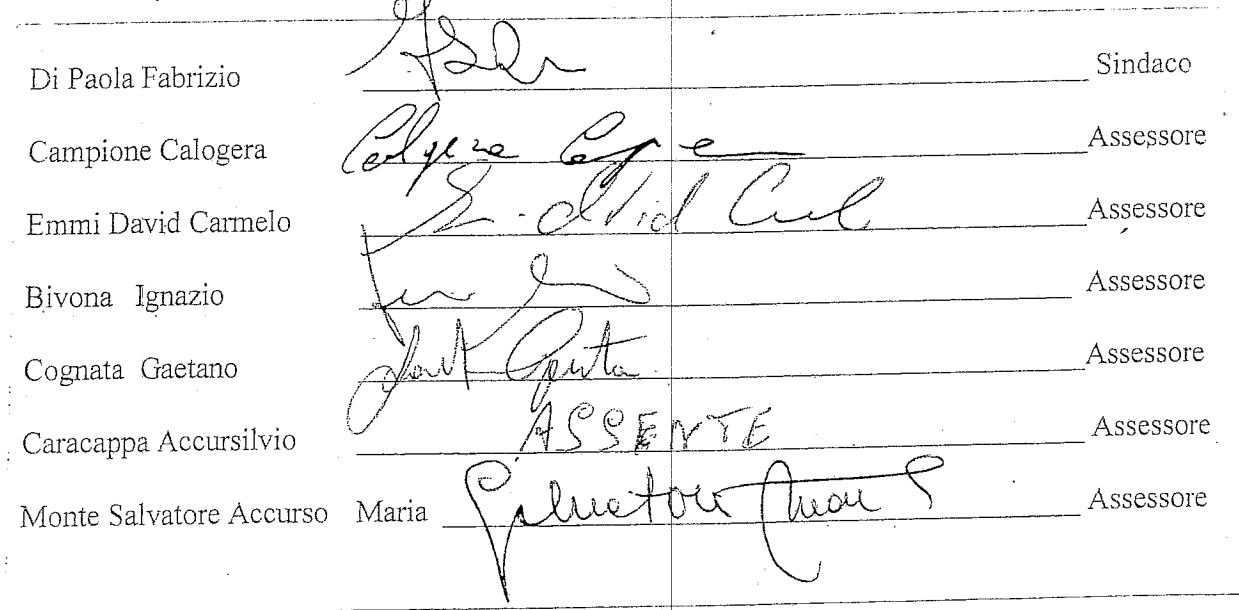 Di Paola Fabrizio Sindaco
Campione Calogera Assessore
Emmi David Carmelo Assessore
Bivona Ignazio Assessore
Cognata Gaetano Assessore
Caracappa Accursilvio ASSENTE Assessore
Monte Salvatore Accurso Maria Salvatore Assessore